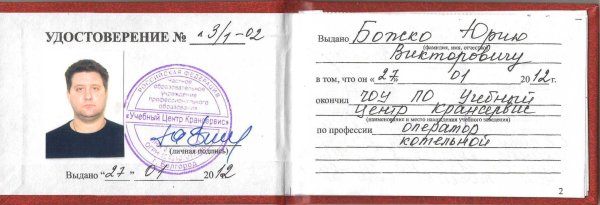 УДОСТОВЕРЕНИЕ № «3/1-02
РОССИЙСКАЯ ФЕДЕРАЦИЯ
Частное
образовательное
учреждение
профессионального
образования
«Учебный Центр Крансервис»
г. Белгород
(личная подпись)
Выдано «27» 01 2012
Выдано Божко Юрию
(фамилия, имя, отчество)
Викторовичу
в том, что он «27» 01 2012 г.
окончил ЧОУ ПО Учебный
Центр Крансервис
(наименование и место нахождения учебного заведения)
по профессии оператор
котельной
2